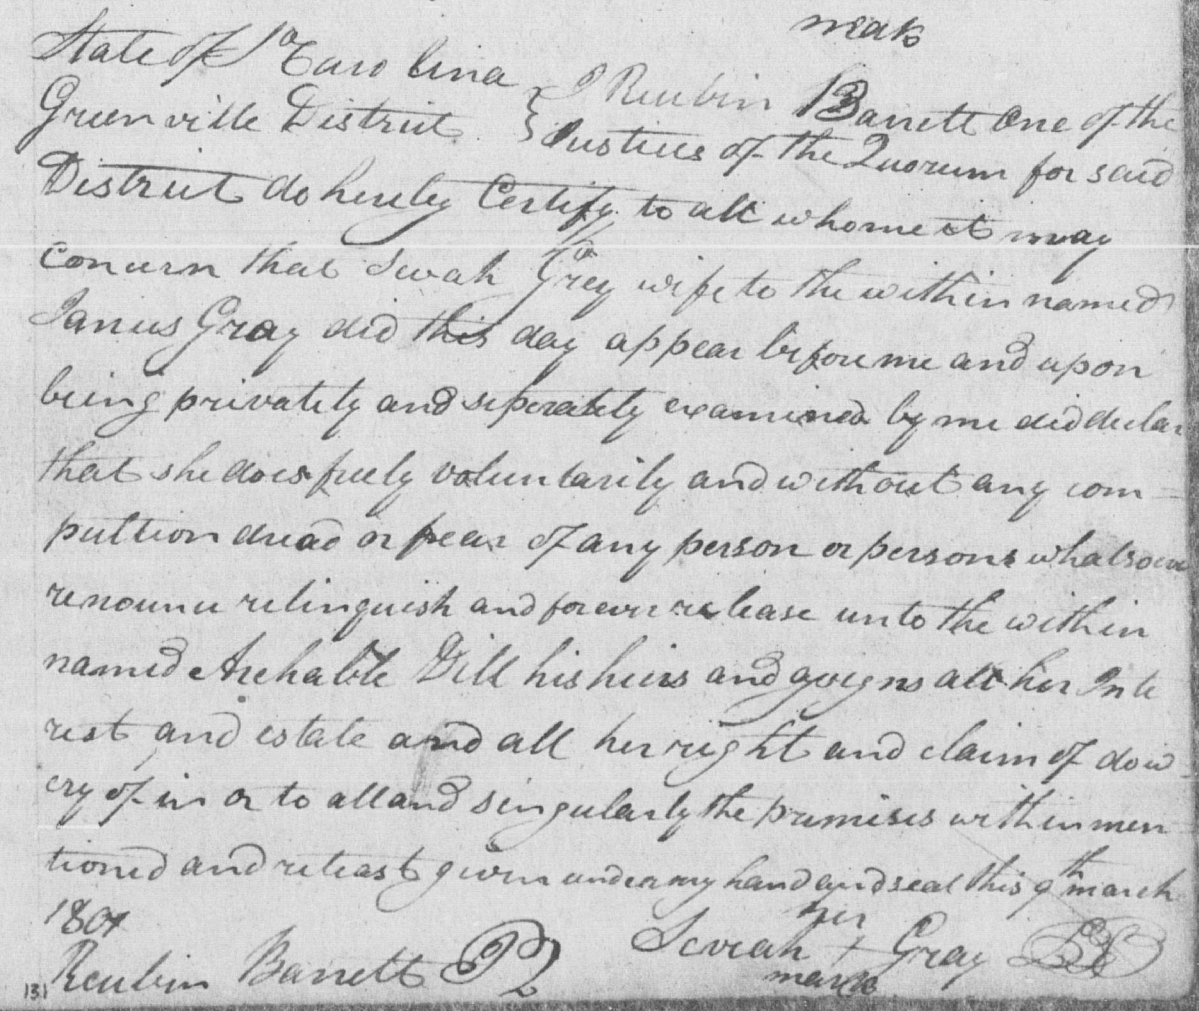 mark
State of So Carolina
Greenville District } I Reubin Barrett One of the
Justices of the Quorum for said
District do hereby Certify to all whome it may
concern that Gray wife to the within named
James Gray did this day appear before me and upon
being privately and seperately examined by me did declar
that she does freely voluntarily and without any com=
pultion dread or fear of any person or persons whatsoever
renounce relinquish and forever release unto the within
named Archable Dill his heirs and assigns all her Inte
rest and estate and all her right and claim of dow=
ery of in or to all and singularly the premises within men=
tioned and releast given under my hand and seal this 9th march
1804
her
Seviah + Gray LS
mark
Reubin Barrett
131